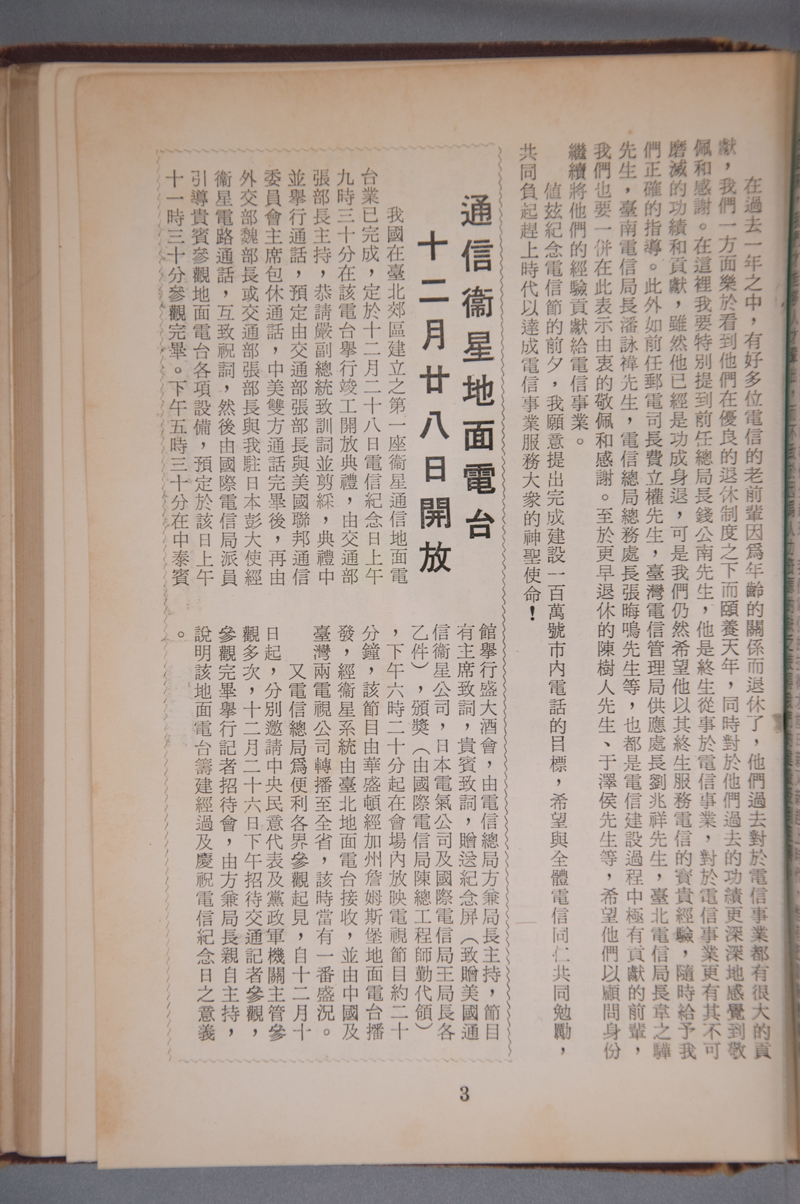 在過去一年之中，有好多位電信的老前輩因爲年齡的關係而退休了，他們過去對於電信事業都有很大的貢
獻，我們一方面樂於看到他們在優良的退休制度之下而頤養天年，同時對於他們過去的功績更深深地感覺到敬
佩和感謝。在這裡我要特別提到前任總局長錢公南先生，他是終生從事於電信事業，對於電信事業更有其不可
磨滅的功績和貢獻，雖然他已經是功成身退，可是我們仍然希望他以其終生服務電信的寳貴經驗，隨時給予我
們正確的指導。此外如前任郵電司長費立權先生，臺灣電信管理局供應處長劉兆祥先生，臺北電信局長韋之驊
先生，臺南電信局長潘詠禕先生，電信總局總務處長張晦鳴先生等，也都是電信建設過程中極有貢獻的前輩，
我們也要一併在此表示由衷的敬佩和感謝。至於更早退休的陳樹人先生、于澤侯先生等，希望他們以顧問身份
繼續將他們的經驗貢獻給電信事業。
值玆紀念電信節的前夕，我願意提出完成建設一百萬號市內電話的目標，希望與全體電信同仁共同勉勵，
共同負起趕上時代以達成電信事業服務大衆的神聖使命！
通信衞星地面電台
十二月廿八日開放
我國在臺北郊區建立之第一座衞星通信地面電
台業已完成，定於十二月二十八日電信紀念日上午
九時三十分在該電台舉行竣工開放典禮，由交通部
張部長主持，恭請嚴副總統致訓詞並剪綵，典禮中
並舉行通話，預定由交通部張部長與美國聯邦通信
委員會主席包休通話，中美雙方通話完畢後，再由
外交部魏部長或交通部張部長與我駐日本彭大使經
衞星電路通話，互致祝詞，然後由國際電信局派員
引導貴賓參觀地面電台各項設備，預定於該日上午
十一時三十分參觀完畢。下午五時三十分在中泰賓
館舉行盛大酒會，由電信總局方兼局長主持，節目
有主席致詞，貴賓致詞，贈送紀念屏（致贈美國通
信衞星公司，日本電氣公司及國際電信局王局長各
乙件），頒獎（由國際電信局陳總工程師勤代領）
，下午六時二十分起在會場內放映電視節目約二十
分鐘，該節目由華盛頓經加州詹姆斯堡地面電台播
發，經衞星系統由臺北地面電台接收，並由中國及
臺灣兩電視公司轉播至全省，該時當有一番盛況。
又電信總局爲便利各界參觀起見，自十二月十
日起，分別邀請中央民意代表及黨政軍機關主管參
觀多次，十二月二十六日下午招待交通記者參觀，
參觀完畢舉行記者招待會，由方兼局長親自主持，
說明該地面電台籌建經過及慶祝電信紀念日之意義
。
3